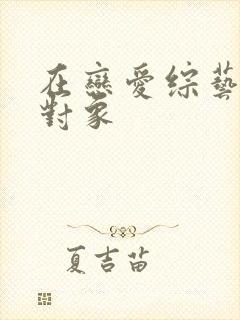 在戀愛綜藝
對象
夏吉苗